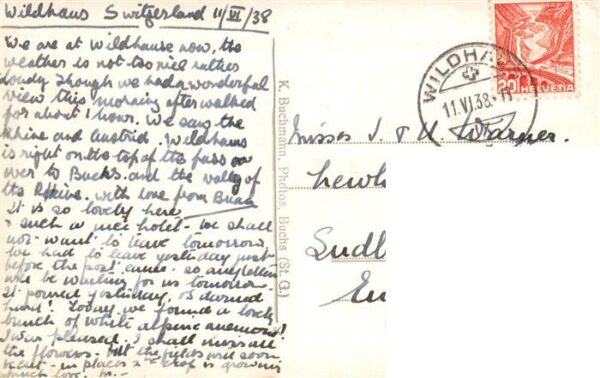 Wildhaus Switzerland 11/VI/38
We are at Wildhause now, the
weather is not too nice rather
cloudy though we had a wonderful
view this morning after walked
for about 1 hour. We saw the
Rhine and Austria. Wildhaus
is right on the top of the pass
over to Buchs. and the valley of
the Rhine. with love from Brian
It is so lovely here
& such a nice hotel - we shall
not want to leave tomorrow,
We had to leave yesterday just
before the post came. so any letters
will be waiting for us tomorrow.
It poured yesterday, &
hard! Today we found a lovely
bunch of white alpine anemone!
I was pleased. I shall miss all
the flowers - but the fields will soon
be cut - in places 2nd crop is growing
much love. M. -
K. Buchmann, Photos, Buchs (St. G.)
20 HELVETIA
WILDHA
11.VI.38
Misses J & M Warner.
Lewh
Sudl
En